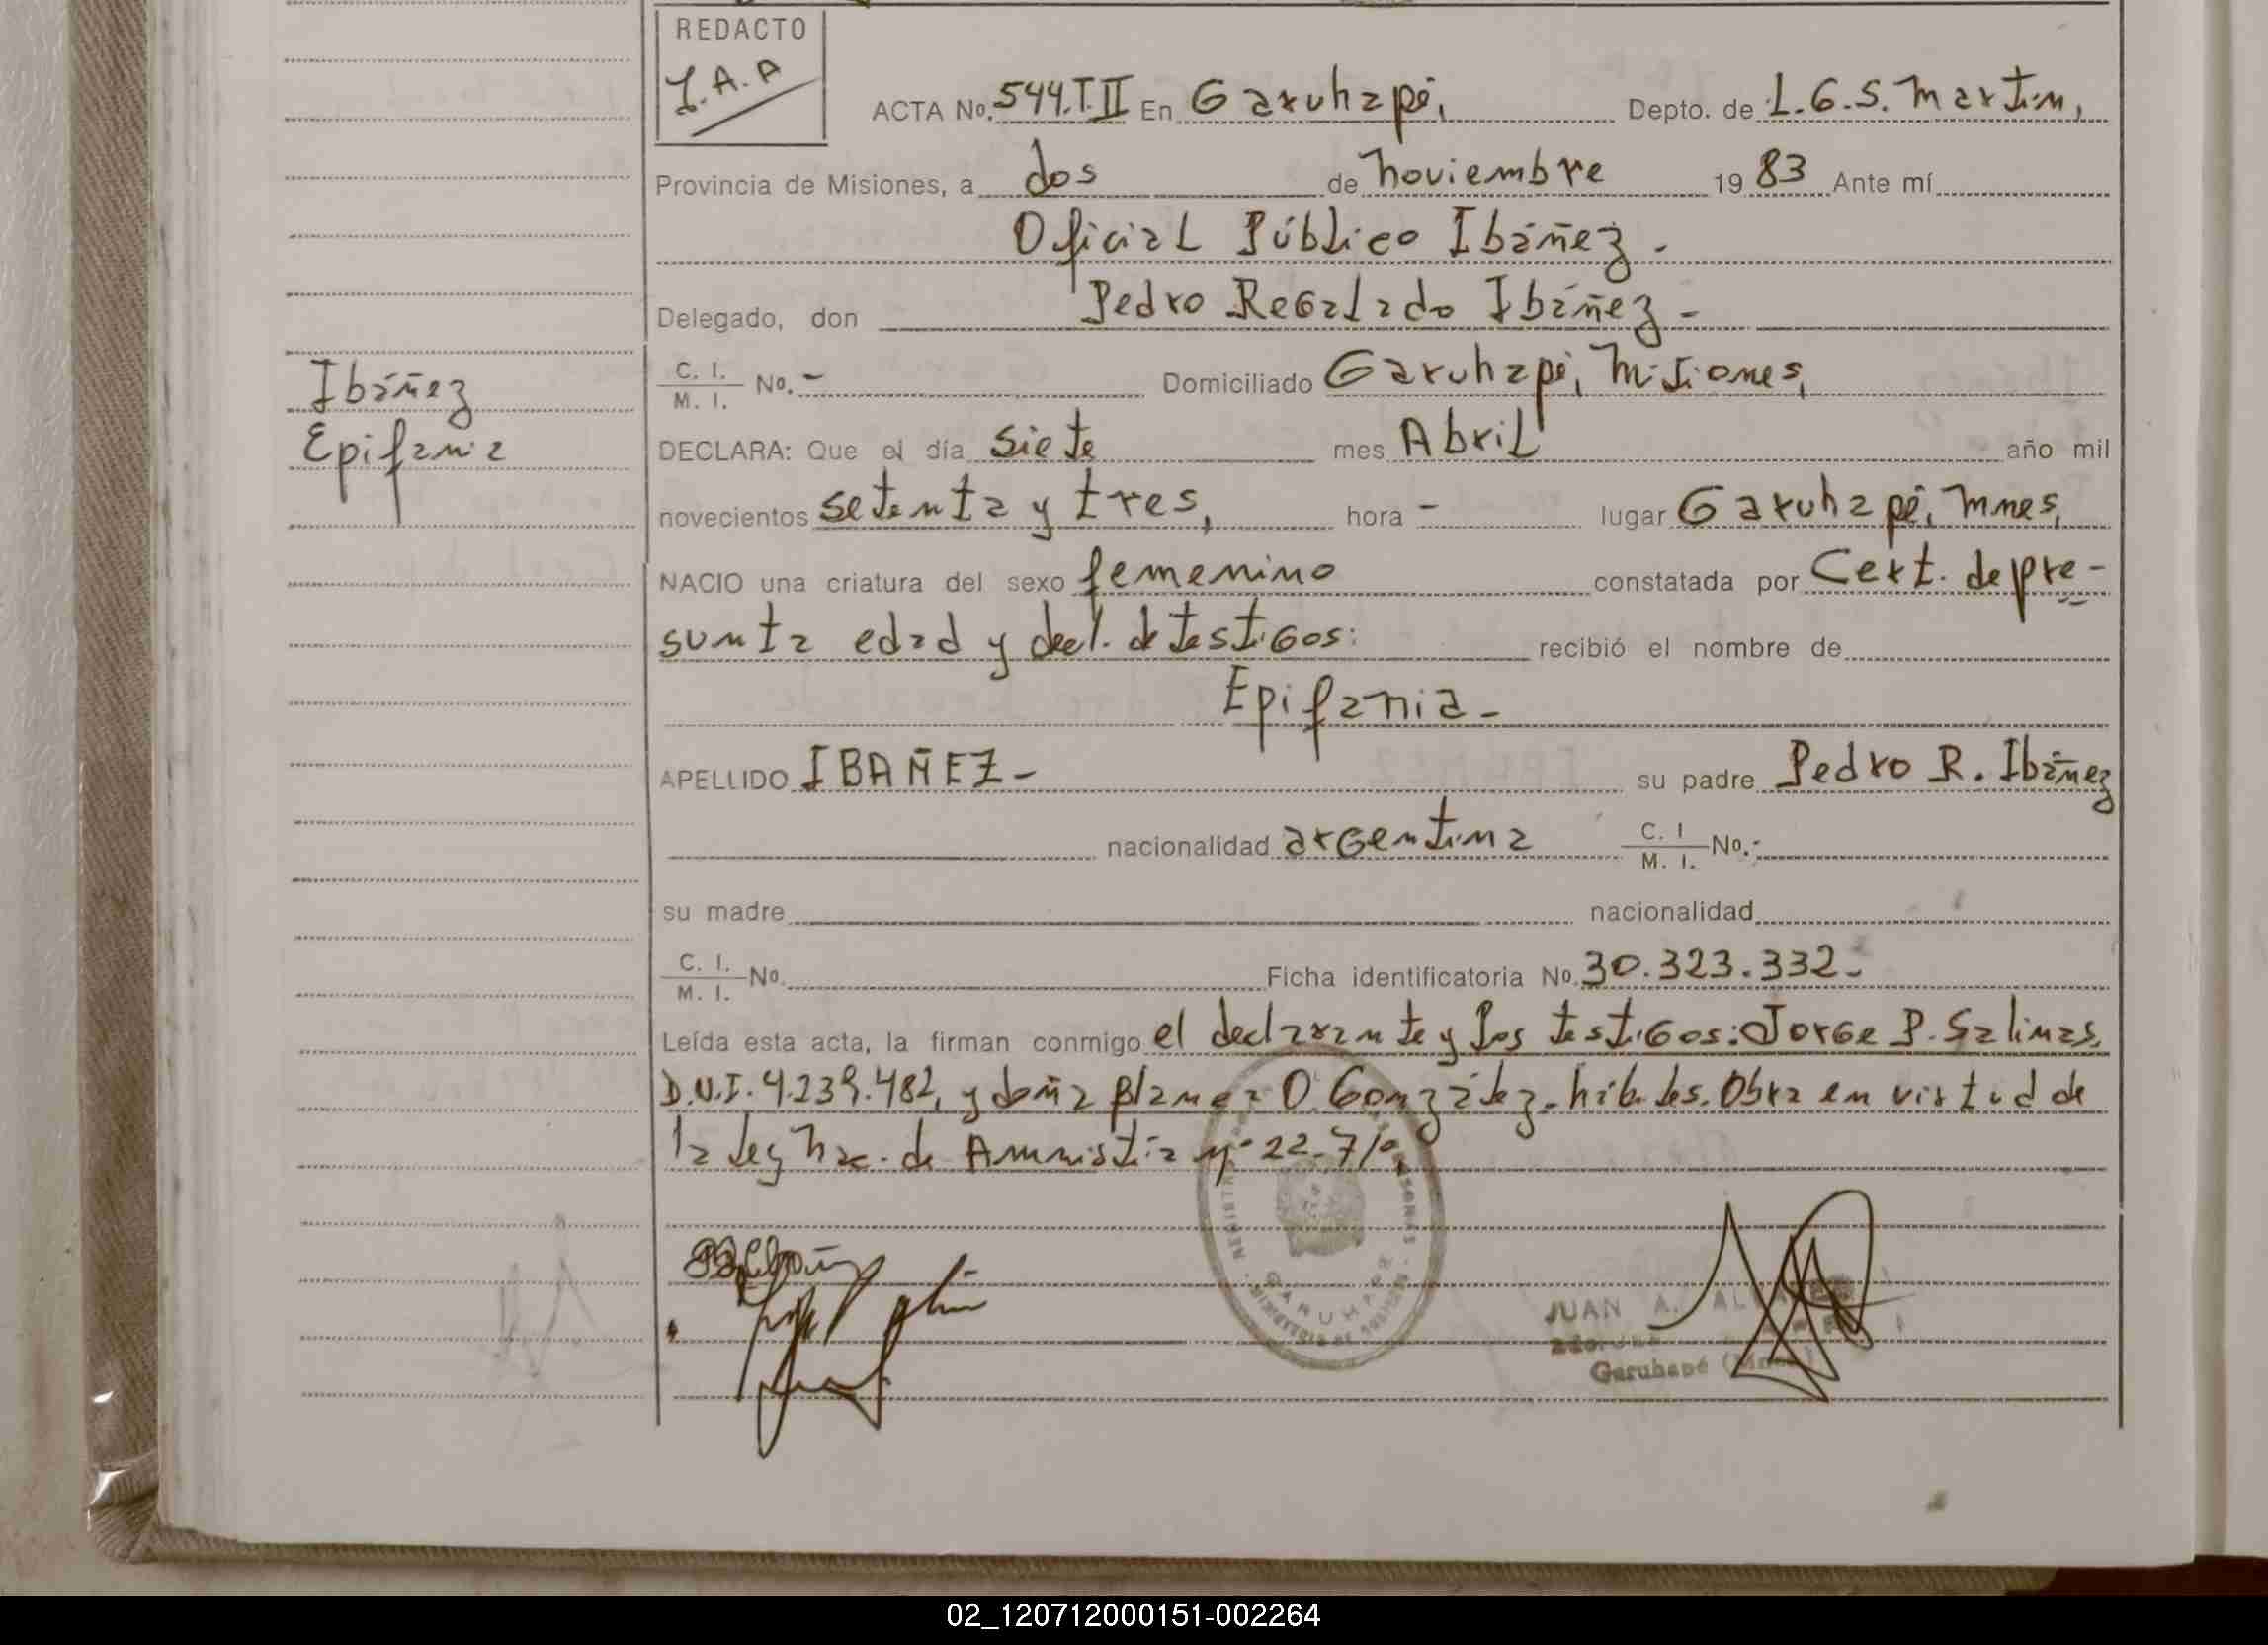 REDACTO
J.A.A
ACTA No. 544.T.II En Garuhapé, Depto. de L.G.S. Martin,
Provincia de Misiones, a dos de noviembre 1983 Ante mí
Oficial Público Ibáñez.
Delegado, don Pedro Regalado Ibáñez -
C. I. / M. I. No. - Domiciliado Garuhapé, Misiones,
Ibáñez
Epifania
DECLARA: Que el día siete mes Abril año mil
novecientos setenta y tres, hora - lugar Garuhapé, Mnes,
NACIO una criatura del sexo femenino constatada por Cert. de pre-
sunta edad y decl. de testigos: recibió el nombre de
Epifania -
APELLIDO IBAÑEZ - su padre Pedro R. Ibáñez
nacionalidad argentina C. I / M. I. No. -
su madre nacionalidad
C. I. / M. I. No. Ficha identificatoria No. 30.323.332-
Leída esta acta, la firman conmigo el declarante y los testigos: Jorge P. Salinas,
D.N.I. 4.239.482, y doña Blanca O. González - hábiles. Obra en virtud de
la Ley Nac. de Amnistía nº 22.710,
GARUHAPE
JUAN A.
Garuhapé (Mnes.)
02_120712000151-002264